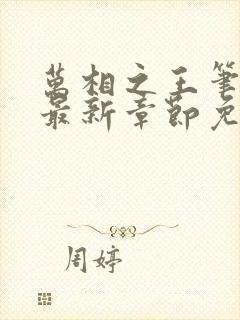 萬相之王筆
最新章節免
周婷